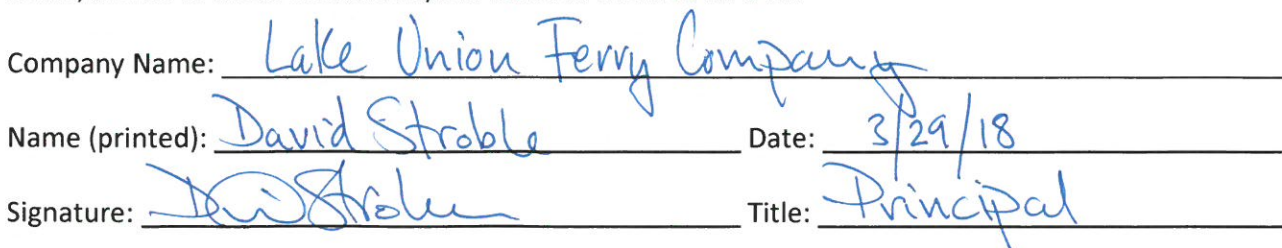 Company Name: Lake Union Ferry Company
Name (printed): David Stroble Date: 3/29/18
Signature: David Stroble Title: Principal